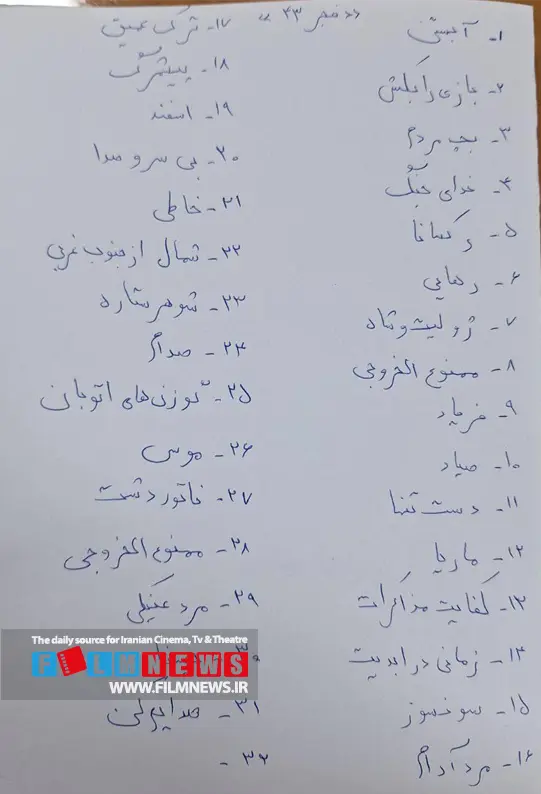 «فجر ۴۳»
۱- آبستن
۲- بازی را بکش
۳- بچه مردم
۴- خدای جنگ
۵- رکسانا
۶- رهایی
۷- ژولیت و شاه
۸- ممنوع الخروجی
۹- فریاد
۱۰- صیاد
۱۱- دست تنها
۱۲- ماریا
۱۳- کفایت مذاکرات
۱۴- زمانی در ابدیت
۱۵- سونسوز
۱۶- مرد آرام
۱۷- ترک عمیق
۱۸- پیشمرگ
۱۹- اسفند
۲۰- بی سر و صدا
۲۱- خاطی
۲۲- شمال از جنوب غربی
۲۳- شوهر ستاره
۲۴- صدام
۲۵- گوزن‌های اتوبان
۲۶- موسی
۲۷- ناتور دشت
۲۸- ممنوع الخروجی
۲۹- مرد عینکی
۳۰-
۳۱-
۳۲-
The daily source for Iranian Cinema, Tv & Theatre
FILMNEWS
WWW.FILMNEWS.IR